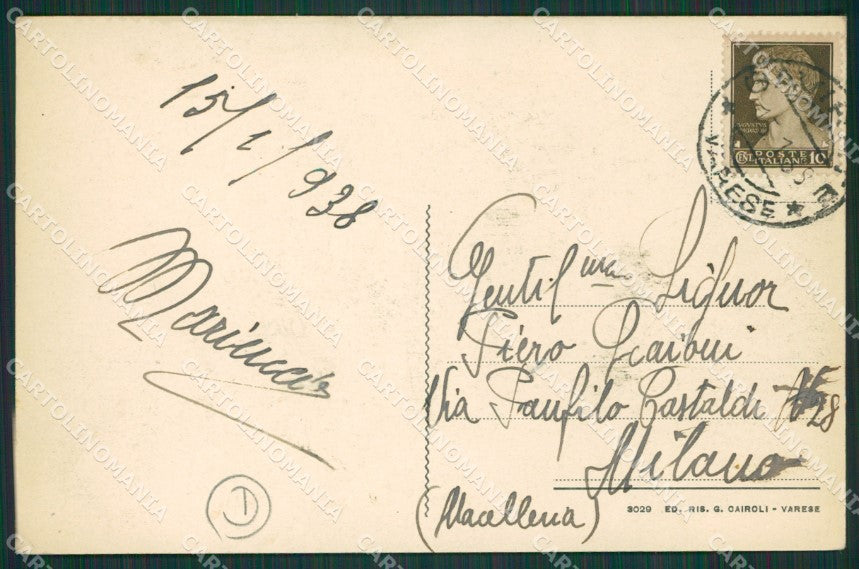 15/1/938
Mariuccia
Gentil.mo Signor
Piero
Via Panfilo Castaldi N° 28
Milano
(Macelleria)
3029 ED. RIS. G. CAIROLI - VARESE
POSTE
ITALIANE
CENT. 10
* VARESE *
CARTOLINOMANIA